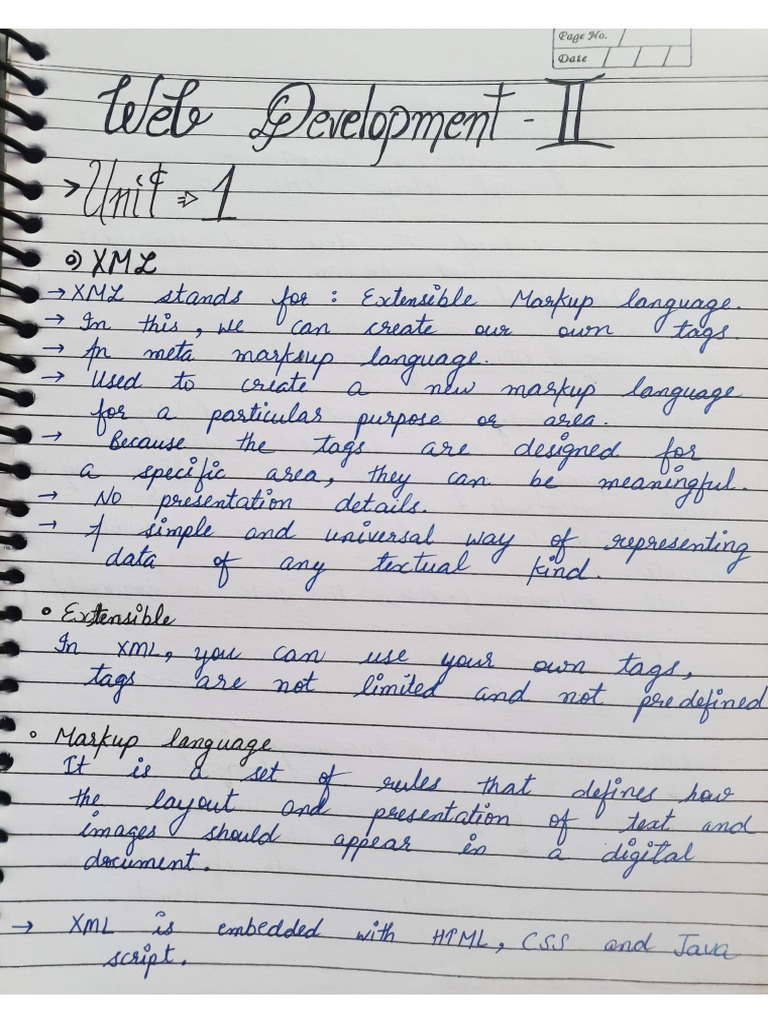 Page No.
Date
Web Development - II
> Unit ⇒ 1
o) XML
→ XML stands for : Extensible Markup language.
→ In this, we can create our own tags.
→ An meta marksup language.
→ Used to create a new markup language
for a particular purpose or area.
→ Because the tags are designed for
a specific area, they can be meaningful.
→ No presentation details.
→ A simple and universal way of representing
data of any textual kind.
• Extensible
In XML, you can use your own tags,
tags are not limited and not predefined
◦ Markup language
It is a set of rules that defines how
the layout and presentation of text and
images should appear in a digital
document.
→ XML is embedded with HTML, CSS and Java
script.